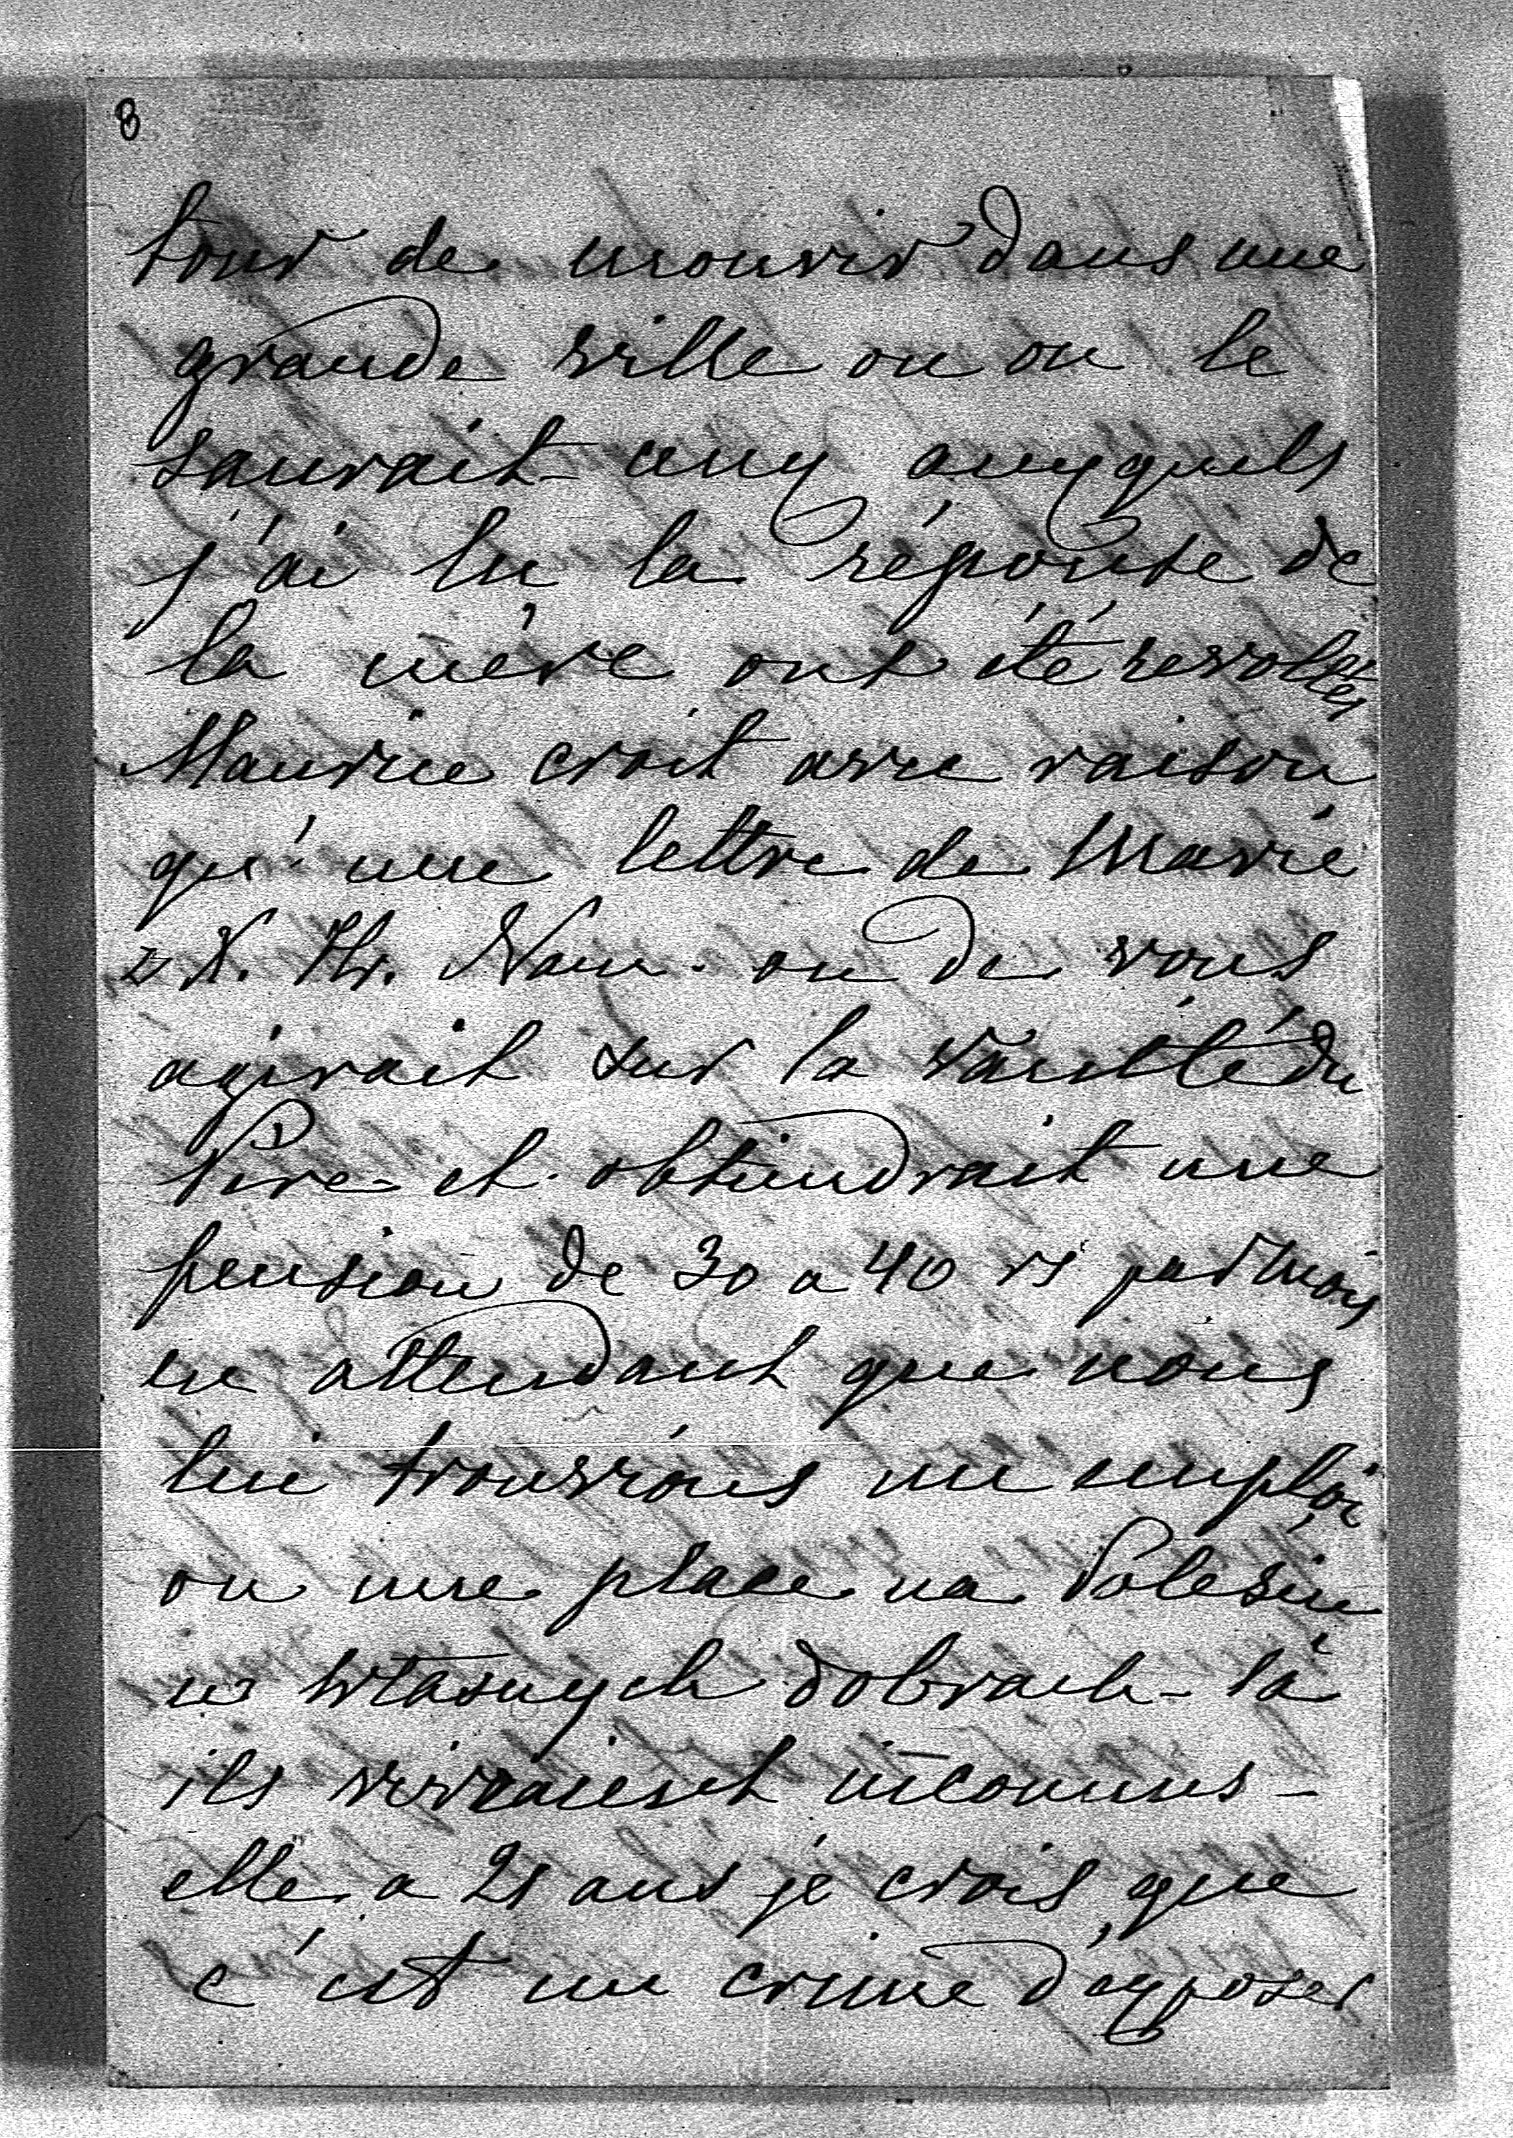 8
tour de mourir dans une
grande ville ou on le
saurait ceux auxquels
j'ai lu la réponse de
la mère ont été revoltés
Maurice croit avec raison
qu'une lettre de Marie
z X. Hr. Nam. ou de vous
agirait sur la vanité du
Père - et obtiendrait une
pension de 30 a 40 rs par mois
en attendant que nous
lui trouvions un emploi
ou une place na Polesiu
w własnych dobrach - là
ils vivraient inconnus -
elle a 21 ans je crois que
c'est un crime d'exposer